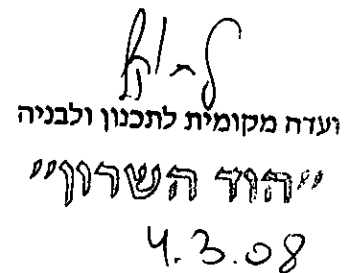 ועדה מקומית לתכנון ולבניה
"הוד השרון"
4.3.08